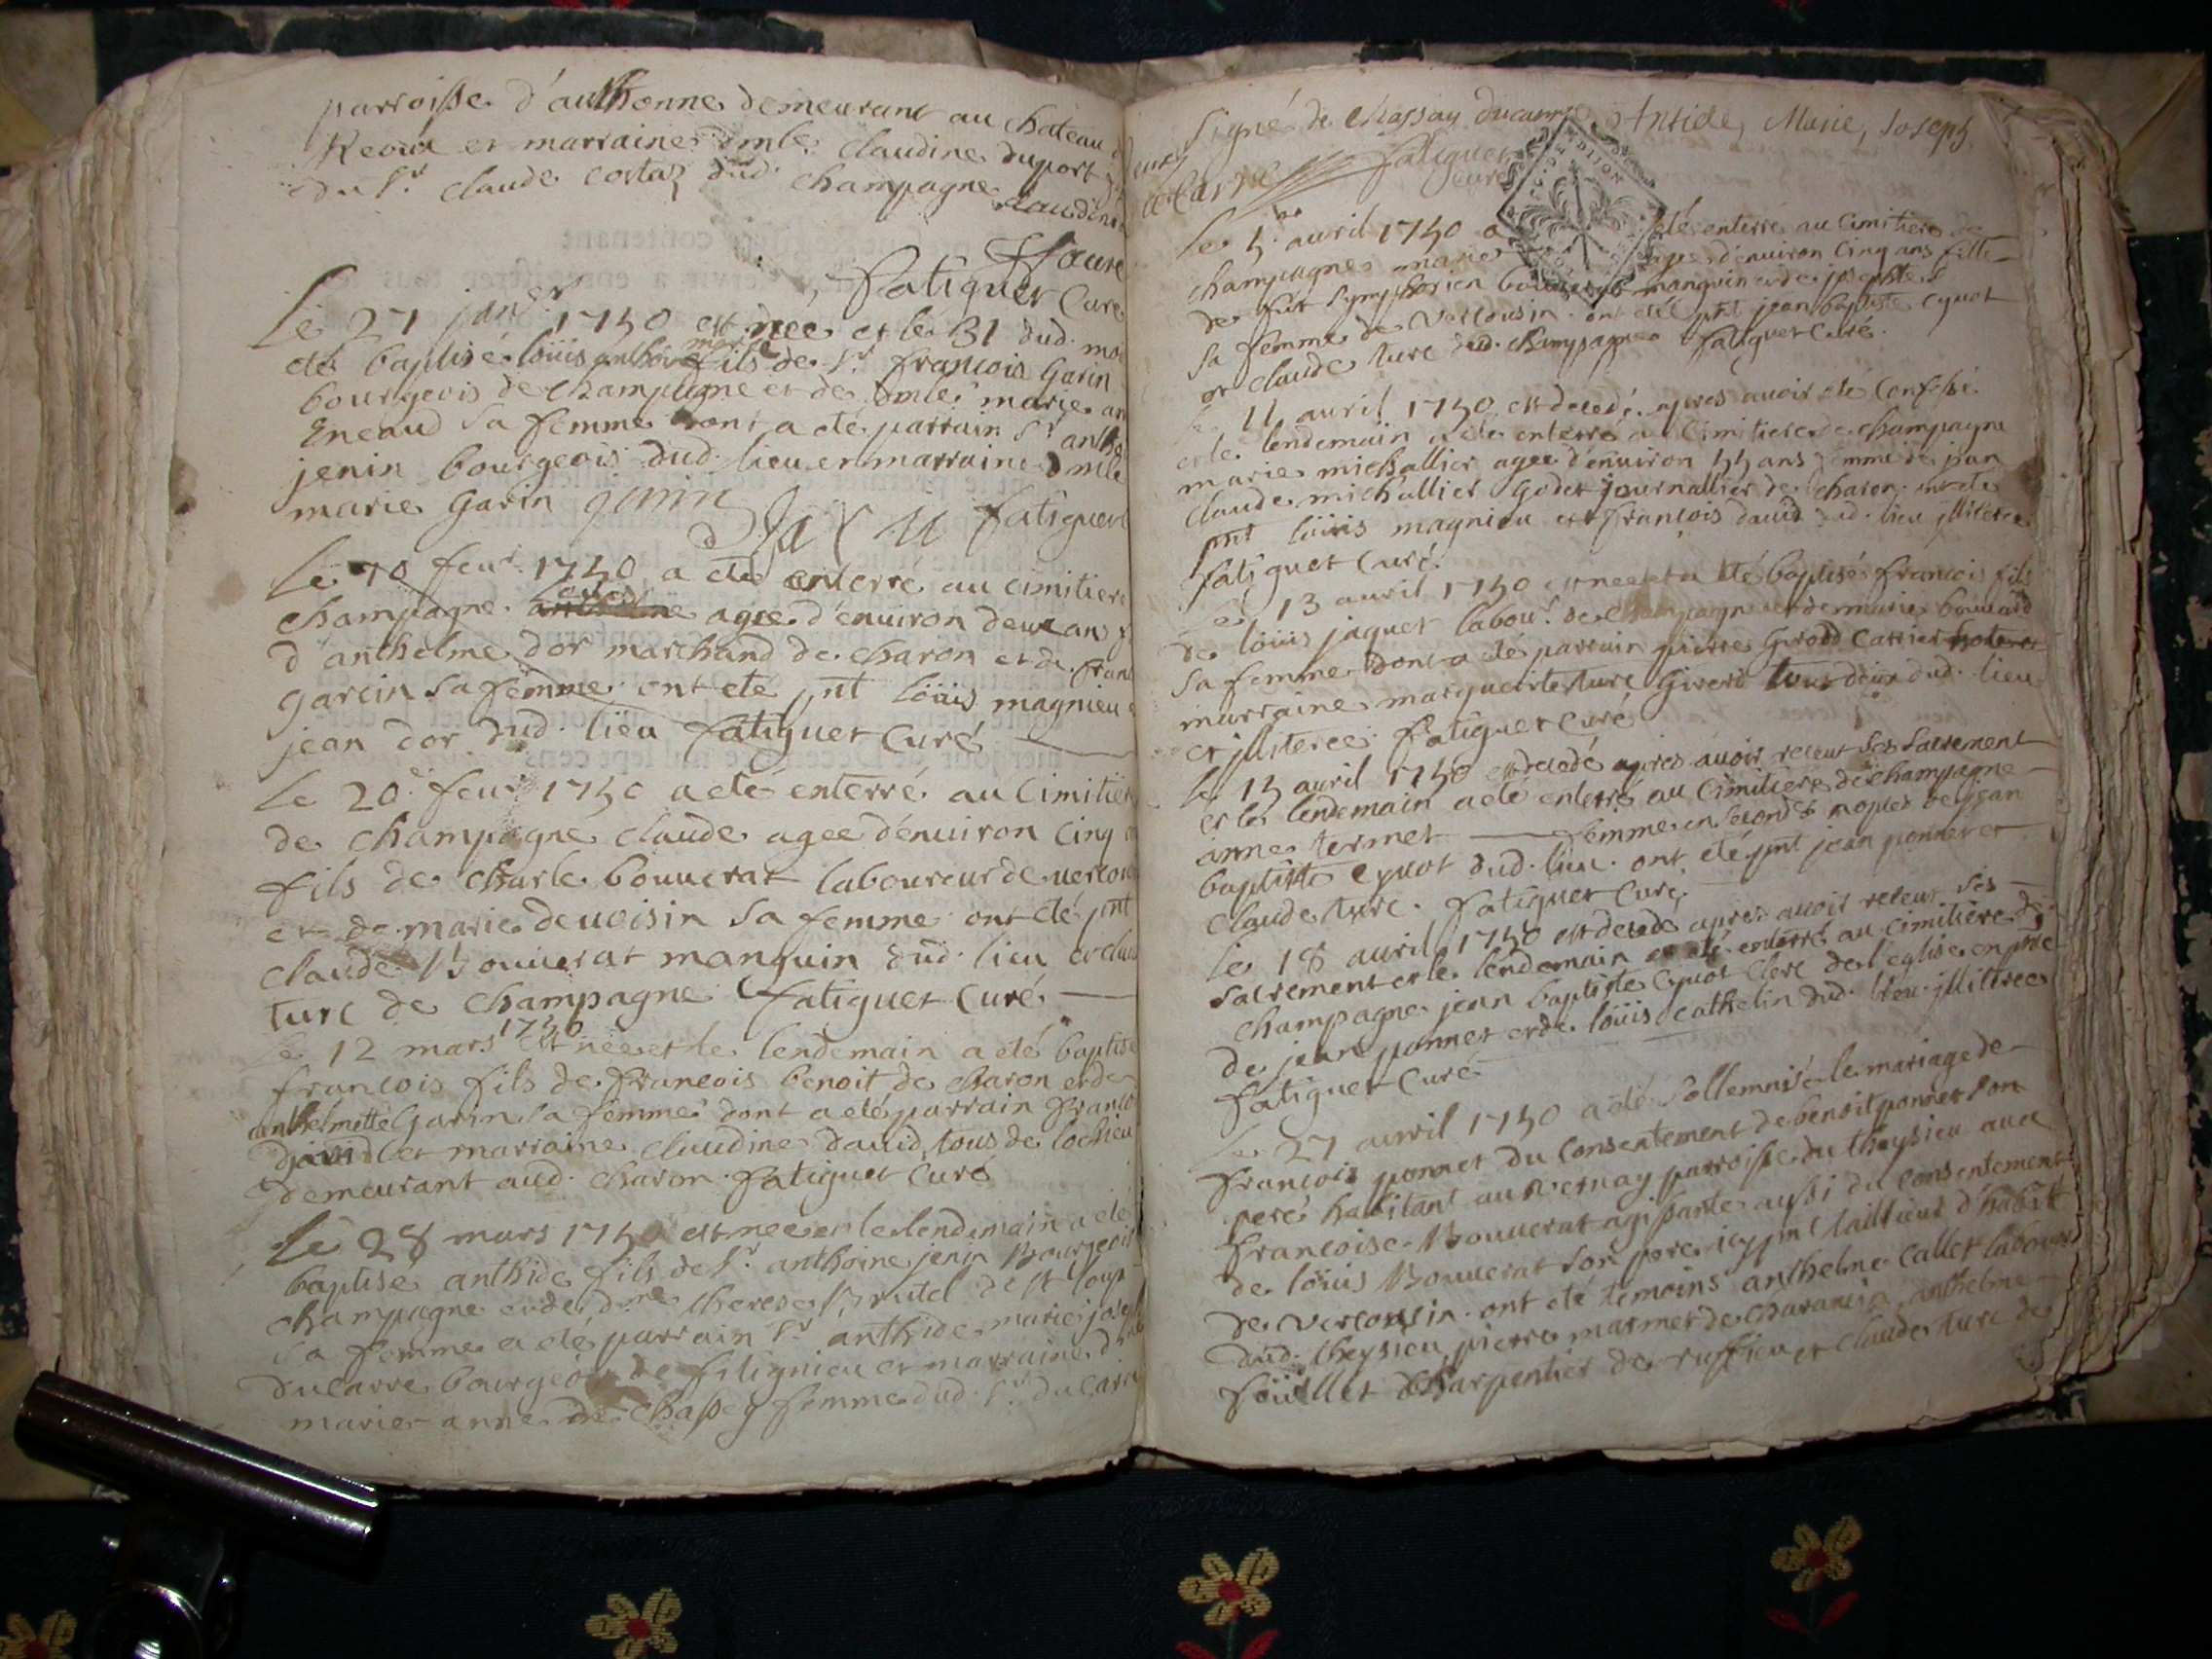 parroisse d'authonne demeurant au chateau
et marraine dmle claudine duport
du Sr claude costaz dud. champagne claudine
faure
fatiguet Curé
Le 27 janer 1750 est nee et le 31 dud. moi
eté baptisé loüis anthoi marie fils de Sr francois Garin
bourgeois de champagne et de dmle marie an
Eneaud sa femme dont a eté parrain Sr antho
jenin bourgeois dud. lieu et marraine dmle
marie Garin jenin fatiguet
Le 10 feur 1750 a eté enterré au cimitiere
champagne agee d'enuiron deux ans f
d'anthelme dor marchand de charon et de fran
garcin sa femme ont eté pnt loüis magnieu e
jean dor dud. lieu fatiguet Curé
Le 20e feur 1750 a eté enterré au Cimitiere
de champagne claude agee d'enuiron cinq
fils de charle bouuerat laboureur de uercou
et de marie deuoisin sa femme ont eté pnt
claude Bouuerat manguin dud. lieu et clau
turc de champagne fatiguet Curé
Le 12 mars 1750 est nee et le lendemain a eté baptisé
francois fils de francois benoit de charon et de
anthelmette Garin sa femme dont a eté parrain franco
dauid et marraine claudine dauid tous de lochieu
demeurant aud. charon. fatiguet Curé
Le 28 mars 1750 est nee et le lendemain a eté
baptise anthide fils de Sr anthoine jenin Bourgeois
champagne et de dme therese Brutel de st loup
sa femme a eté parrain Sr anthide marie jose
ducarre bourgeois de fitignieu et marraine d
marie anne de chassey femme dud. Sr ducarre
Signé de chassay ducarre Antide, Marie, Joseph
ducarre fatiguet curé
DIJON
Le 5 auril 1750 a eté enterré au Cimitiere de
champagne marie agee d'enuiron Cinq ans fille
de fut Symphorien bouuerat manguin et de josephte
sa femme de Vercousin ont eté pnt jean baptiste Cyuot
et claude turc dud. champagne fatiguet Curé.
Le 11 auril 1750 est decedé apres auoir eté Confessé
et le lendemain a eté enterré au Cimitiere de champagne
marie michallier agee d'enuiron 55 ans femme de jean
claude michallier Godet journallier de charon. ont eté
pnt loüis magnieu et françois dauid dud. lieu jlliteres
fatiguet Curé
Le 13 auril 1750 est nee et a eté baptisé françois fils
de loüis jaquet labour de champagne et de marie bouuard
sa femme dont a eté parrain pierre Girod Carrier
marraine marguerite turc Girerd tous deux dud. lieu
et jlliterees fatiguet Curé
Le 15 auril 1750 est decedé apres auoir receut ses Sacrement
et le lendemain a eté enterré au Cimitiere de champagne
anne termet femme en secondes nopces de jean
baptiste Cyuot dud. lieu. ont eté pnt jean ponnet et
claude turc. fatiguet Curé
Le 18 auril 1750 est decedé apres auoir receut ses
sacrement et le lendemain a eté enterré au Cimitiere de
champagne jean baptiste Cyuot clerc de l'eglise en pnce
de jean ponnet et de loüis cathelin dud. lieu jlliterees
fatiguet Curé
Le 27 auril 1750 a eté Sollemnisé le mariage de
françois ponnet du Consentement de benoit ponnet son
pere habitant au Vernay parroisse du theysieu auec
francoise Bouuerat agissante aussi du consentement
de loüis Bouuerat son pere icy pnt tailleur d'habit
de vercousin. ont eté temoins anthelme Callet labour
dud. theysieu, pierre marmet de charancin, anthelme
foüillet charpentier de ruffieu et claude turc de